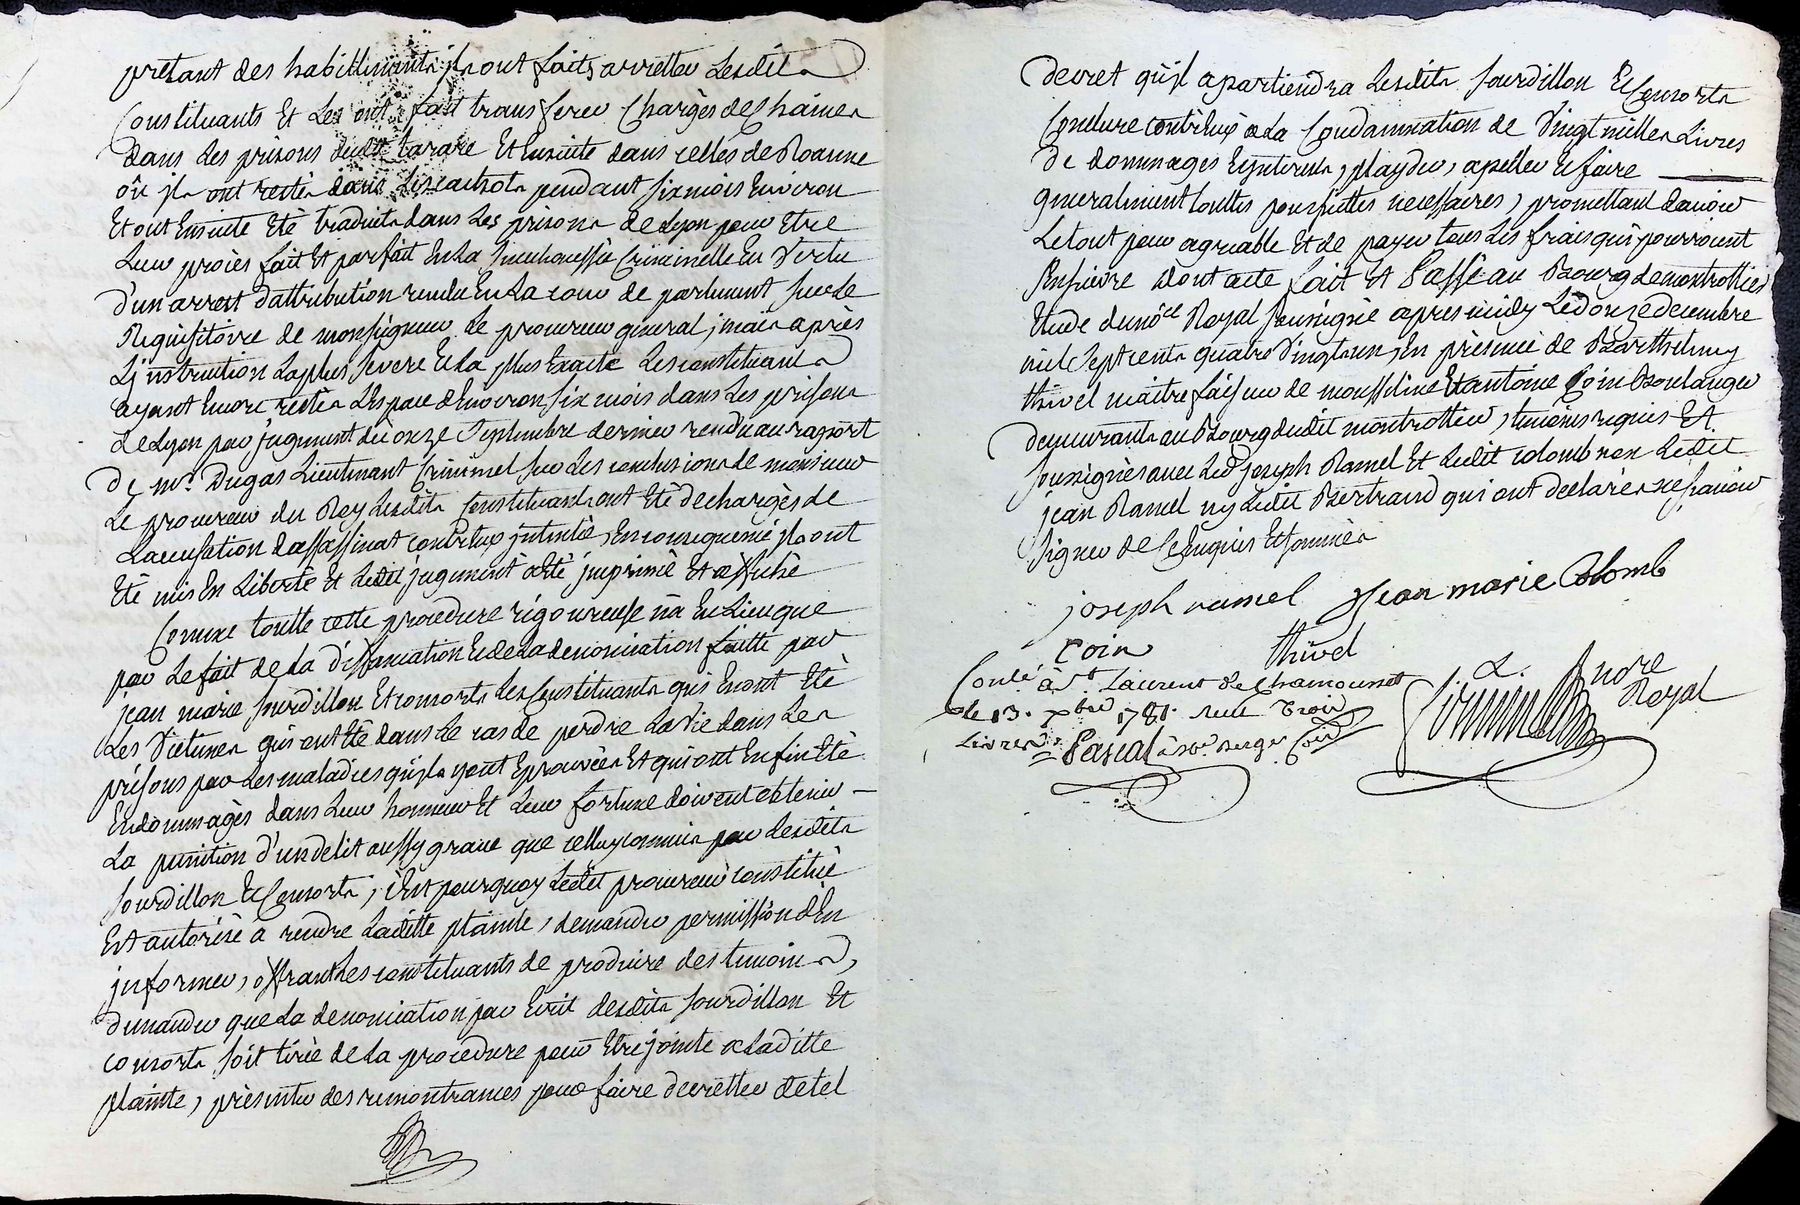 pretant des habillements jls ont faits arretter lesdits
Constituants Et Les ont fait transferer Chargés de Chaines
dans les prisons dudit tarare Et Ensuite dans celles de Roanne
où jls ont restés dans les cachots pendant six mois Environ
Et ont Ensuite Eté traduits dans Les prisons de Lyon pour Etre
Leur procès fait Et parfait En La Senechaussée Criminelle En Vertu
d'un arrest d'attribution rendu En La cour de parlement sur le
Requisitoire de monseigneur Le procureur general ; mais après
L'jnstruction La plus severe Et La plus Exacte Les constituants
ayant Encore restés L'Espace d'Environ six mois dans Les prisons
de Lyon par jugement du onze Septembre dernier rendu au raport
De mr. Dugas Lieutenant Criminel sur Les conclusions de monsieur
Le procureur du Roy Lesdits Constituants ont Eté dechargés de
L'accusation d'assassinat contr'Eux jntentée, En consequence jls ont
Eté mis En Liberté Et Ledit jugement a Eté jmprimé Et affiché
Comme toutte cette procedure rigoureuse n'a Eu Lieu que
par Le fait de La diffamation Et de La denonciation faitte par
jean marie sourdillon Et consorts Les Constituants qui En ont Eté
Les Victimes qui ont Eté dans Le cas de perdre La Vie dans Les
prisons par Les maladies qu'jls y ont Eprouvées Et qui ont Enfin Eté
Endommagés dans Leur honneur Et Leur fortune doivent obtenir
La punition d'un delit aussy grave que celluy commis par Lesdits
sourdillon Et Consorts, C'Est pourquoy Ledit procureur constitué
Est autorisé à rendre Laditte plainte, demander permission d'En
jnformer, offrant Les constituants de produire des temoins,
demander que La denonciation par Ecrit desdits sourdillon Et
consorts soit tirée de La procedure pour Etre jointe a Laditte
plainte, présenter des remontrances pour faire decretter de tel
decret qu'jl apartiendra Lesdits sourdillon Et Consorts
Conclure contr'Eux a La Condamnation de Vingt milles Livres
De dommages Et jnterests, playder, apeller Et faire
generalement touttes poursuittes necessaires, promettant d'avoir
Le tout pour agreable Et de payer tous Les frais qui pourroient
S'En suivre Dont acte fait Et Passé au Bourg de montrottier
Etude du no.re Royal soussigné apres midy Le Douze decembre
mil Sept cents quatre Vingt un, En présence de Barthelemy
thivel maitre faiseur de mousseline Et antoine Coin Boulanger
demeurants au Bourg dudit montrottier, temoins requis Et
soussignés avec Led joseph Ramel Et Ledit colomb non Ledit
jean Ramel ny Ledit Bertrand qui ont declarés ne sçavoir
signer de ce Enquis Et sommés
joseph ramel Jean marie Colomb
Coin thivel
Conlé à St. Laurent de Chamousset
Le 13. Xbre 1781. Reçu trois
Livres Pascal
nore
Royal